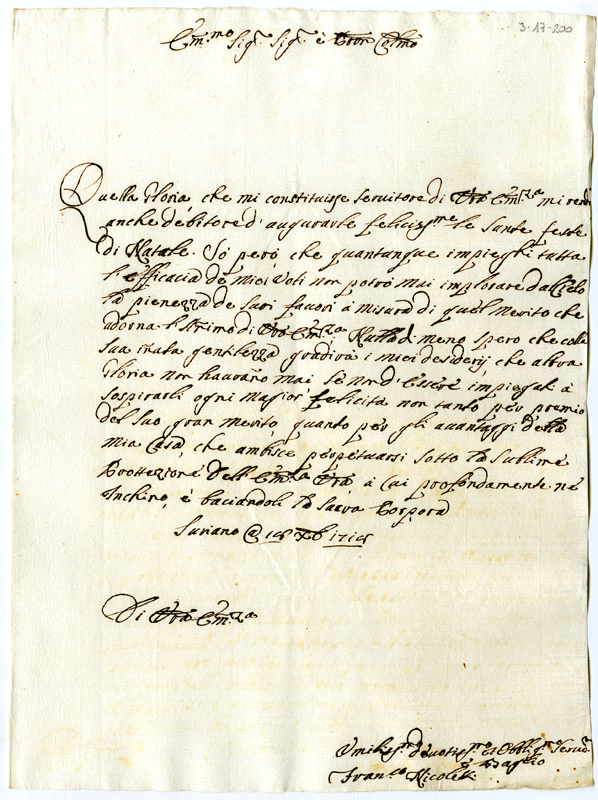 3-17-200
Em.mo Sig.r Sig.r è Pron Colmo
Quella Gloria, che mi constituisse seruitore di Vra Em.za mi rende
anche debitore d'augurarle feliciss.me le Sante feste
di Natale. Sò però che quantunque impieghi tutta
l'efficacia de miei Voti non potrò mai implorare dal Cielo
la pienezza de suoi fauori à misura di quel Merito che
adorna l'Animo di Vra Em.za Nulla di meno spero che colla
sua innata gentilezza gradirà i miei desiderij, che altra
Gloria non hauranno mai, sè non d'essere impiegati à
sospirarli ogni Magior felicità non tanto per premio
del suo gran merito, quanto per gli auantaggi della
mia Casa, che ambisce perpetuarsi sotto la sublime
Prottezione dell'Em.za Vra à cui profondamente mè
Inchino, è baciandoli la Sacra Porpora
Suriano @ 18 Xb
Di Vra Em.za
Vmiliss.mo Deuotiss.mo et Obblig.mo Seru.re
Fran.co Nicolet